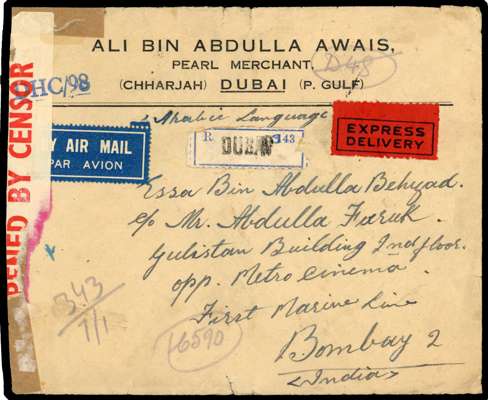 ALI BIN ABDULLA AWAIS,
PEARL MERCHANT.
(CHHARJAH) DUBAI (P. GULF)
D48
DHC/98
Arabic Language
EXPRESS
DELIVERY
BY AIR MAIL
PAR AVION
R. DUBAI 143
OPENED BY CENSOR
Essa Bin Abdulla Behzad.
c/o Mr. Abdulla Faruk.
Gulistan Building IInd floor.
opp. Metro Cinema.
First Marine Line
Bombay 2
<India>
343
1/1
16590